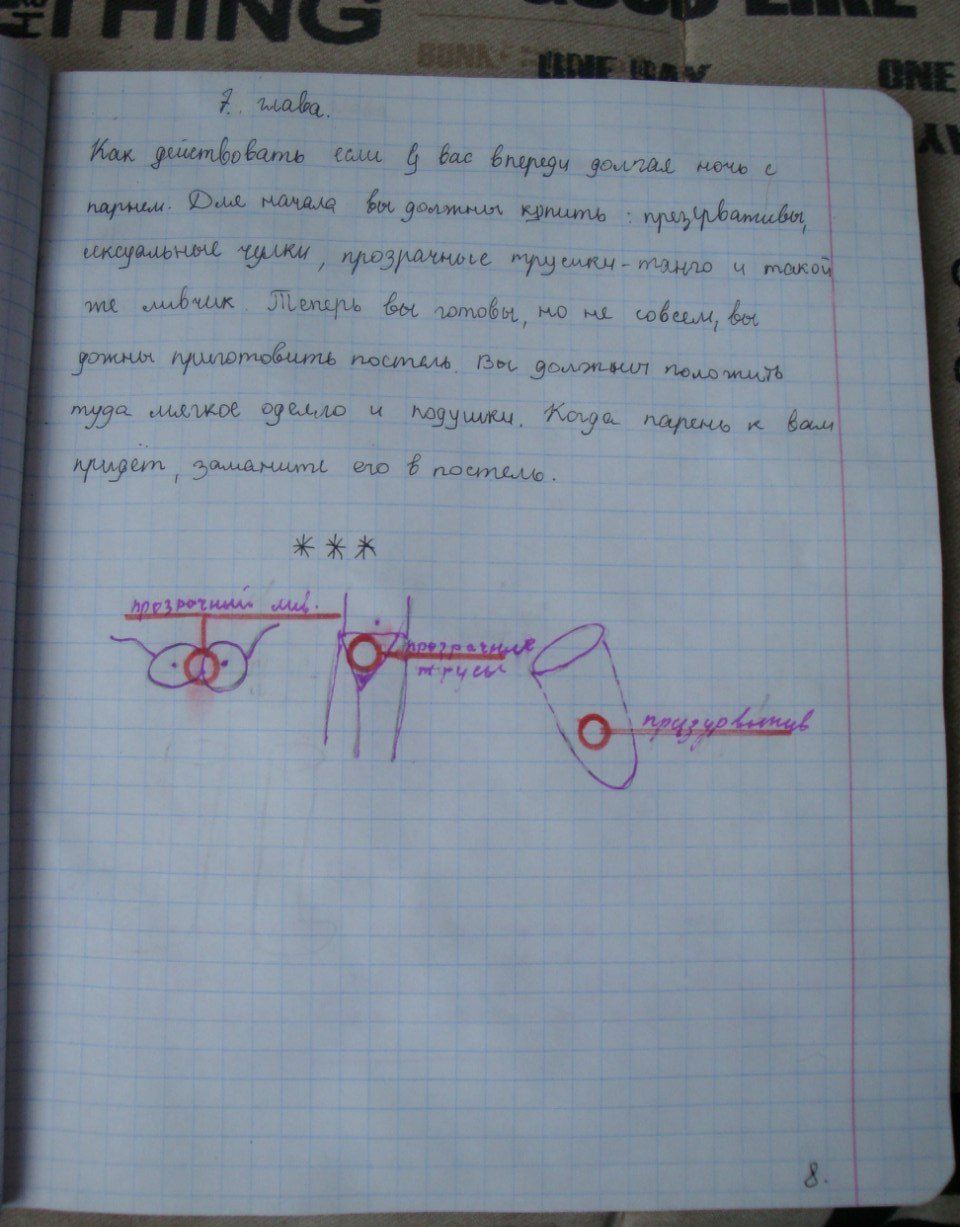 THING
GOOD LIKE
ONE DAY
ONE
7. глава.
Как действовать если у вас впереди долгая ночь с
парнем. Для начала вы должны купить: презурвативы,
сексуальные чулки, прозрачные трусики-танго и такой
же ливчик. Теперь вы готовы, но не совсем, вы
дожны приготовить постель. Вы должны положить
туда мягкое оделло и подушки. Когда парень к вам
придёт, заманите его в постель.
***
прозрачный лив.
прозрачние
трусы
призурватив
8.